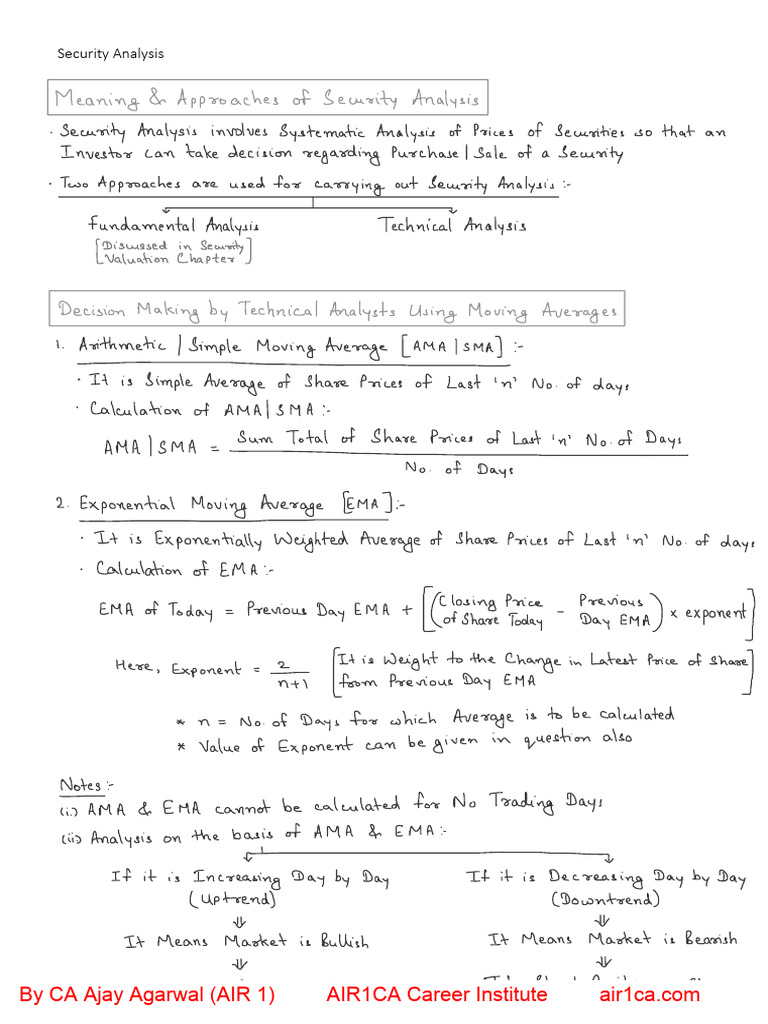 Security Analysis
Meaning & Approaches of Security Analysis
· Security Analysis involves Systematic Analysis of Prices of Securities so that an
Investor can take decision regarding Purchase | Sale of a Security
· Two Approaches are used for carrying out Security Analysis :-
Fundamental Analysis Technical Analysis
[Discussed in Security
Valuation Chapter]
Decision Making by Technical Analysts Using Moving Averages
1. Arithmetic | Simple Moving Average [AMA | SMA] :-
· It is Simple Average of Share Prices of Last 'n' No. of days
· Calculation of AMA | SMA :-
AMA | SMA = Sum Total of Share Prices of Last 'n' No. of Days
No. of Days
2. Exponential Moving Average [EMA] :-
· It is Exponentially Weighted Average of Share Prices of Last 'n' No. of days
· Calculation of EMA :-
EMA of Today = Previous Day EMA + [(Closing Price of Share Today - Previous Day EMA) x exponent]
Here, Exponent = 2/n+1 [It is Weight to the Change in Latest Price of Share
from Previous Day EMA]
* n = No. of Days for which Average is to be calculated
* Value of Exponent can be given in question also
Notes :-
(i.) AMA & EMA cannot be calculated for No Trading Days
(ii) Analysis on the basis of AMA & EMA :-
If it is Increasing Day by Day If it is Decreasing Day by Day
(Uptrend) (Downtrend)
It Means Market is Bullish It Means Market is Bearish
By CA Ajay Agarwal (AIR 1) AIR1CA Career Institute air1ca.com